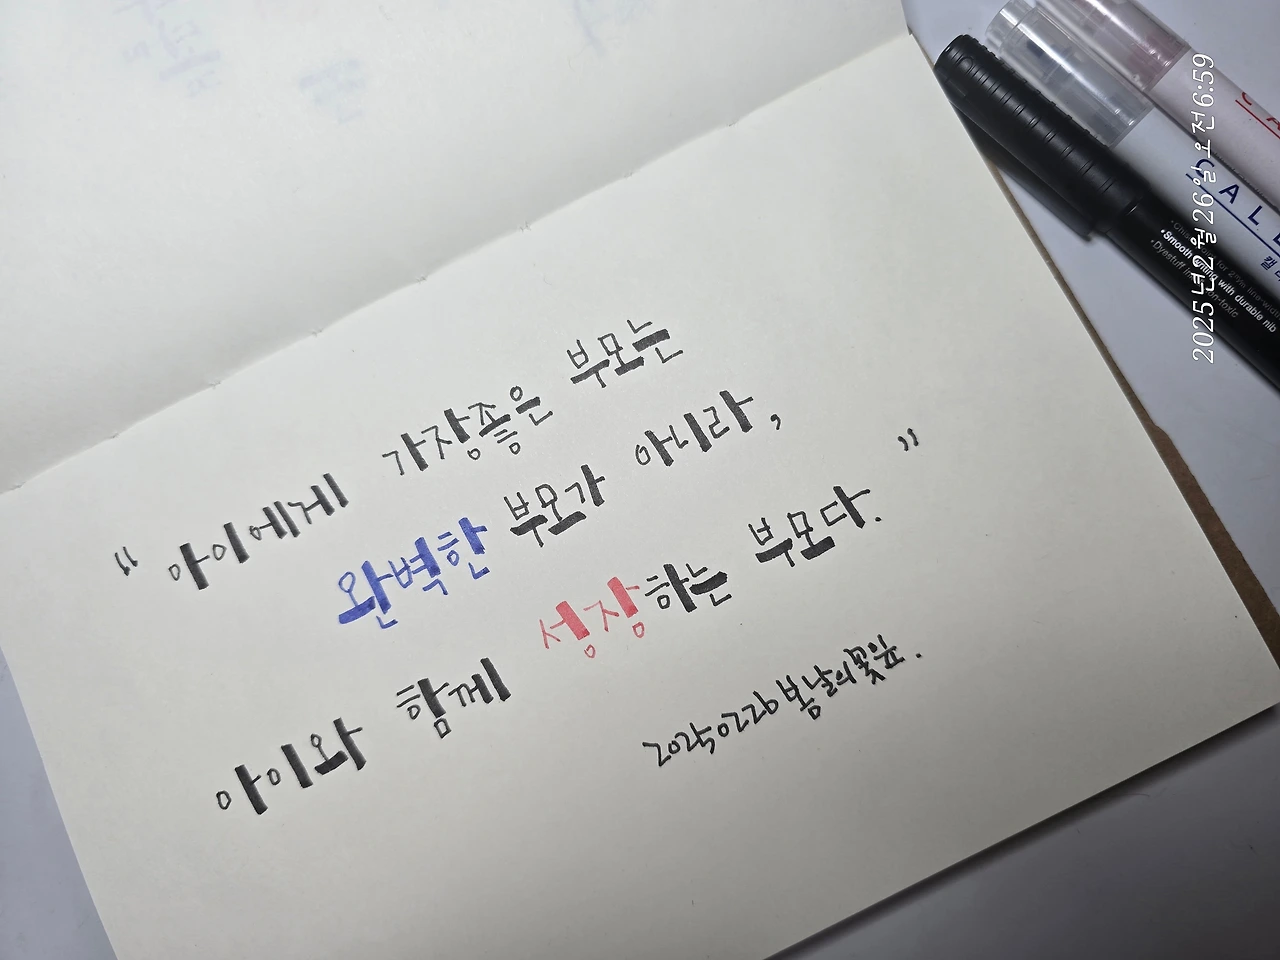 “ 아이에게 가장좋은 부모는
완벽한 부모가 아니라,
아이와 함께 성장하는 부모다. ”
20250226 봄날의꽃잎.
2025년 2월 26일 오전 6:59
CALL
Smooth writing with durable nib